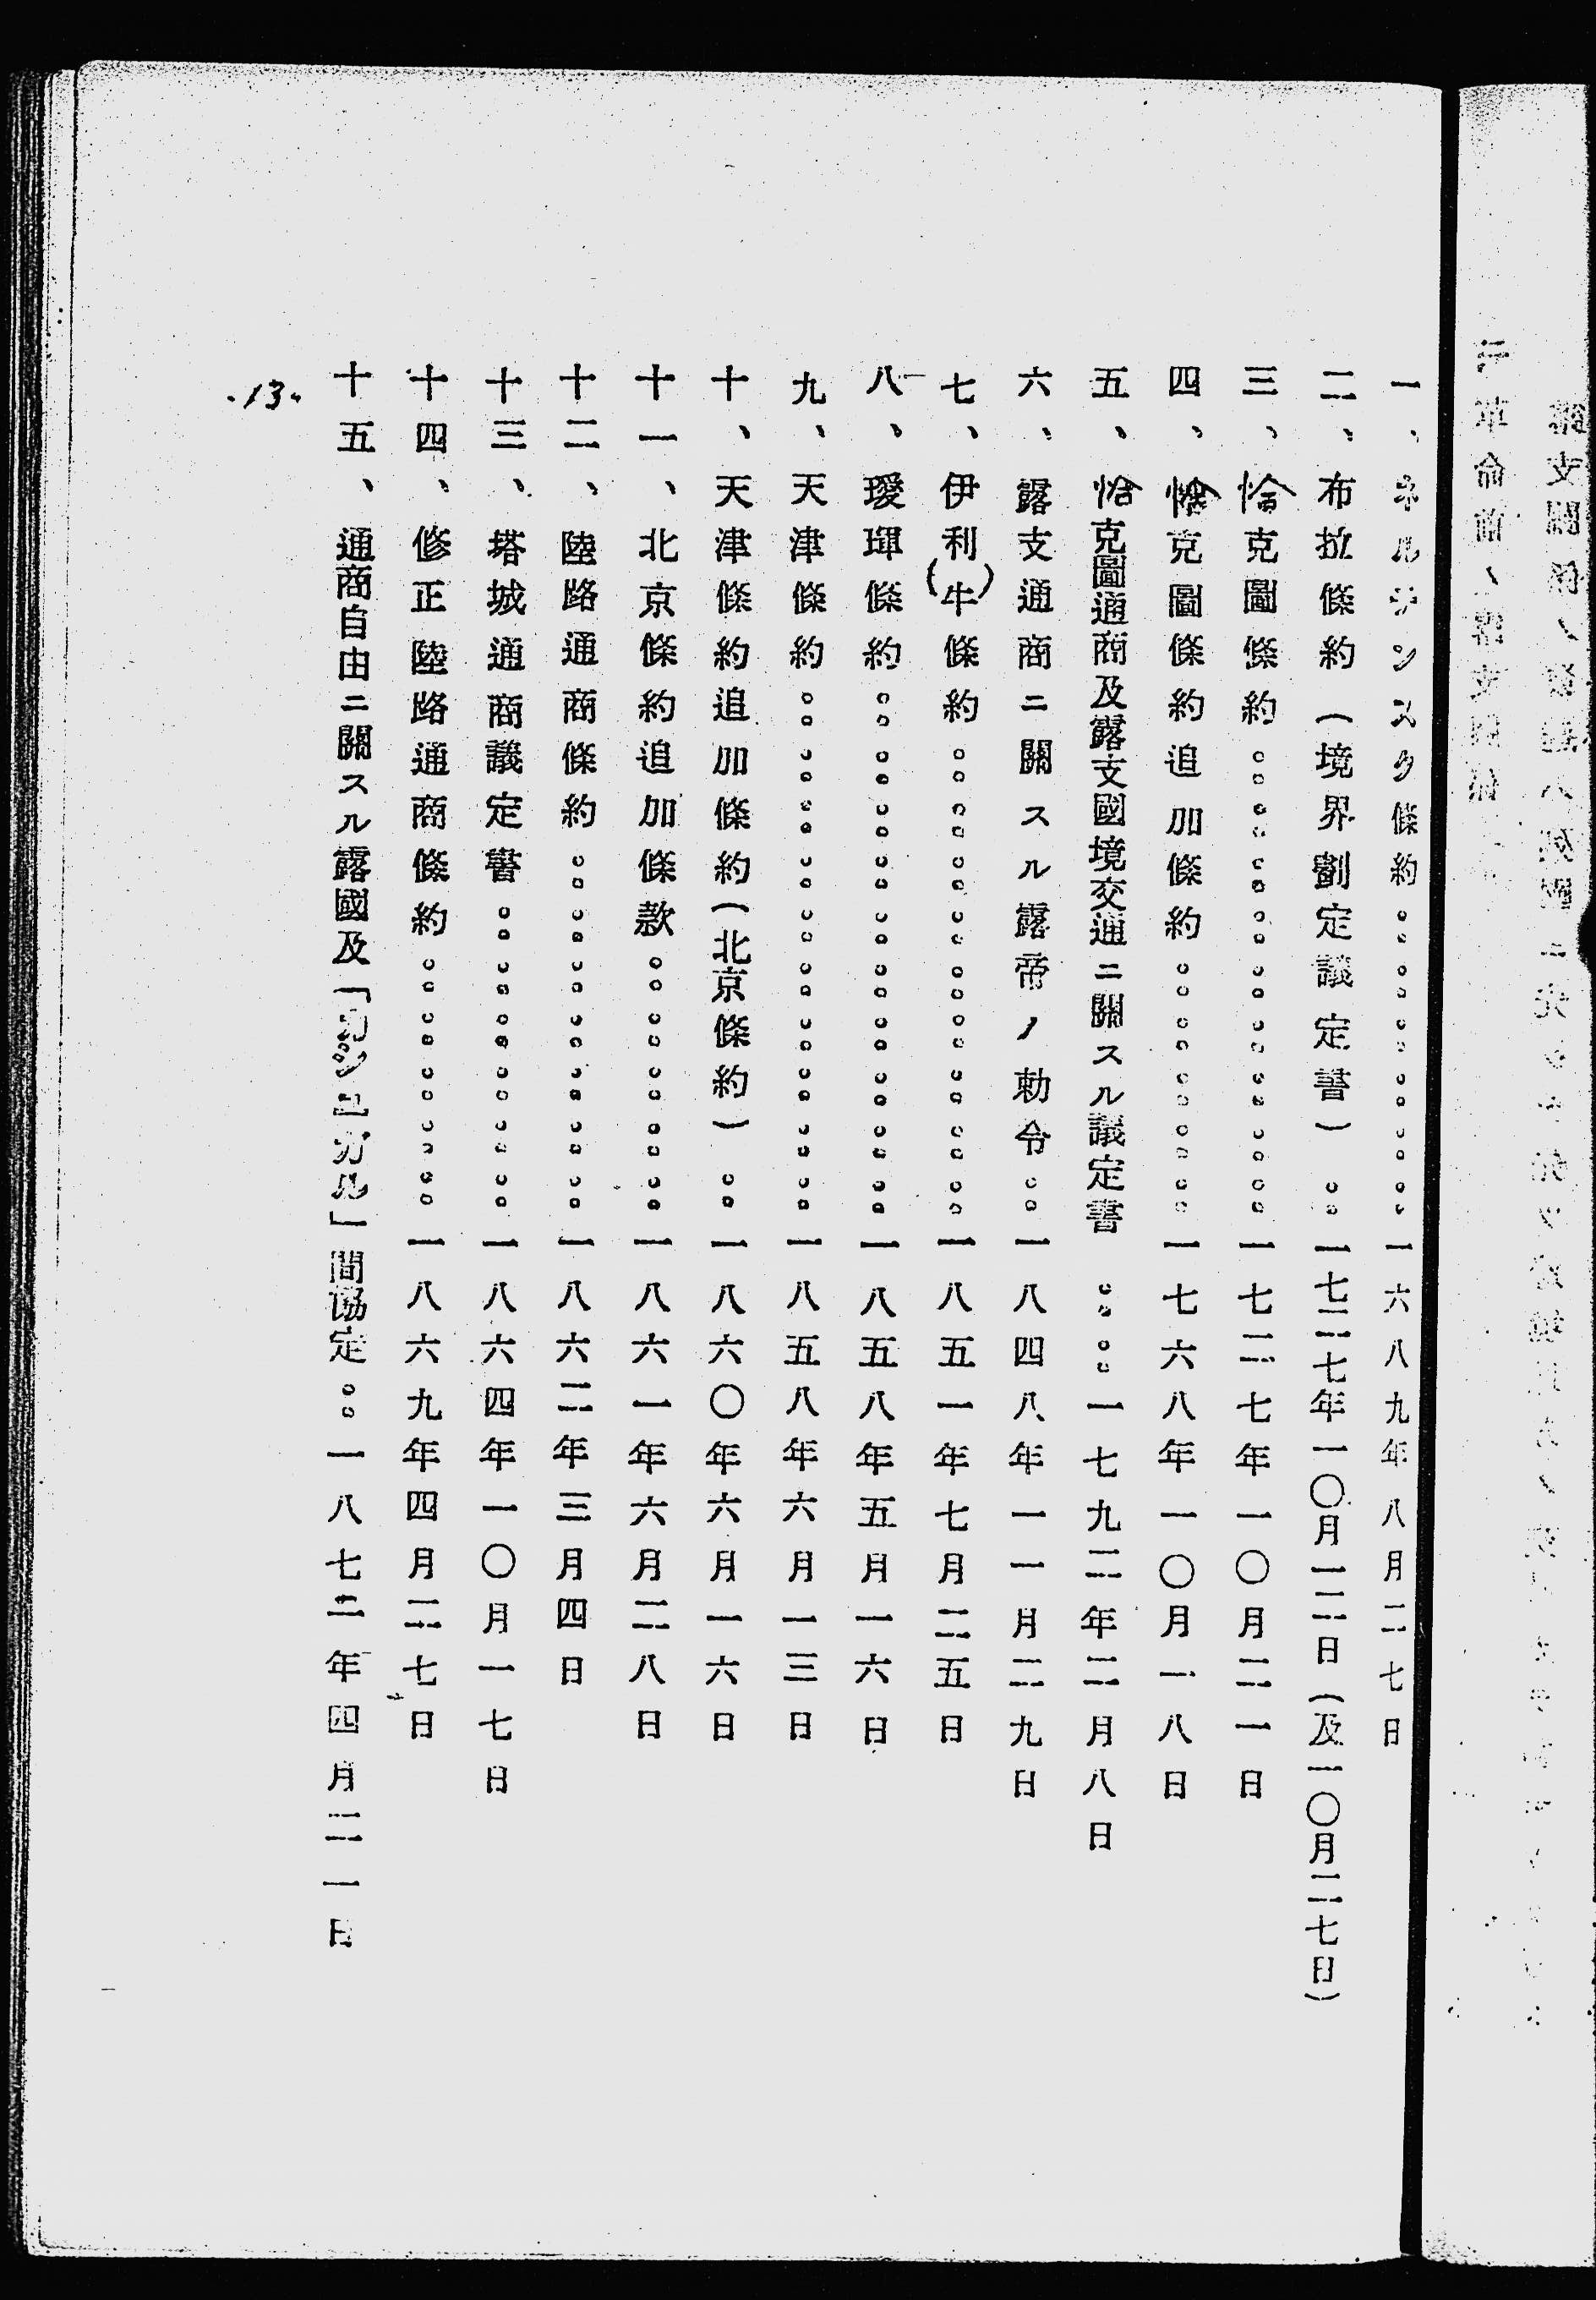 一、ネルチンスク條約。。。。。。。。。。。。一六八九年八月二七日
二、布拉條約（境界劃定議定書）。。一七二七年一〇月一二日（及一〇月二七日）
三、恰克圖條約。。。。。。。。。。。。。。。。。。一七二七年一〇月二一日
四、恰克圖條約追加條約。。。。。。。。。。一七六八年一〇月一八日
五、恰克圖通商及露支國境交通ニ關スル議定書。。。。一七九二年二月八日
六、露支通商ニ關スル露帝ノ勅令。。一八四八年一一月二九日
七、伊利(牛)條約。。。。。。。。。。。。。。。。。。一八五一年七月二五日
八、璦琿條約。。。。。。。。。。。。。。。。。。。。一八五八年五月一六日
九、天津條約。。。。。。。。。。。。。。。。。。。。一八五八年六月一三日
十、天津條約追加條約（北京條約）。。一八六〇年六月一六日
十一、北京條約追加條款。。。。。。。。。。一八六一年六月二八日
十二、陸路通商條約。。。。。。。。。。。。。。一八六二年三月四日
十三、塔城通商議定書。。。。。。。。。。。。一八六四年一〇月一七日
十四、修正陸路通商條約。。。。。。。。。。一八六九年四月二七日
十五、通商自由ニ關スル露國及「カシュガル」間協定。。一八七二年四月二一日
.13.